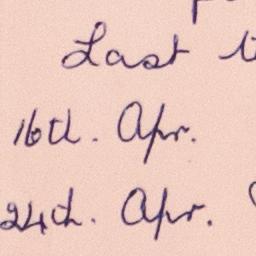 Last
16th. Apr.
24th. Apr.